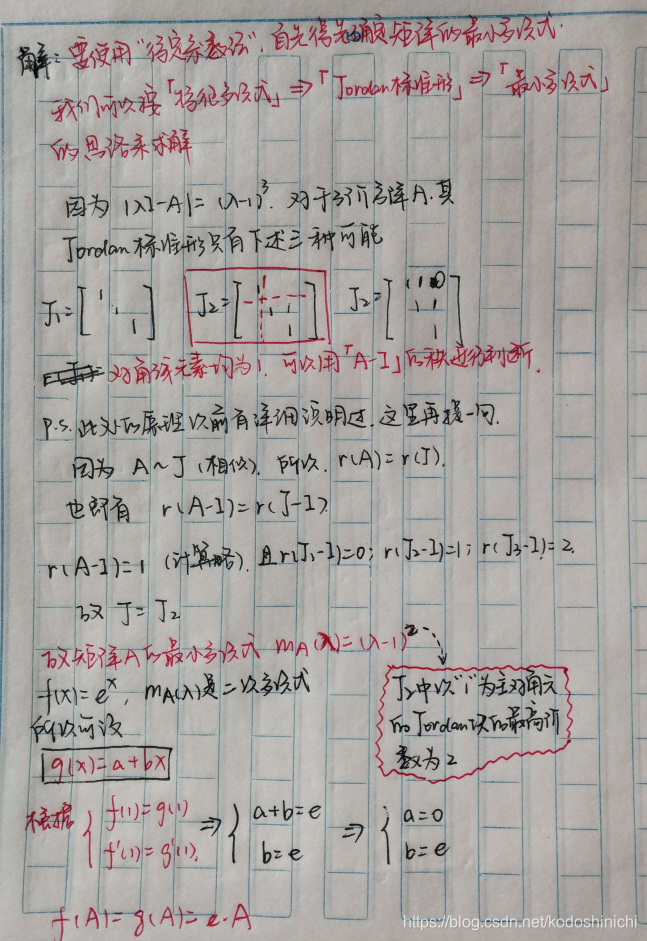 解：要使用"待定系数法"，首先得先确定矩阵的最小多项式．
我们可以按「特征多项式」⇒「Jordan标准形」⇒「最小多项式」
的思路来求解
因为 |λI-A|=(λ-1)³．对于3阶方阵A．其
Jordan标准形只有下述三种可能
J₁=[1 1 1] J₂=[1 1 1 1] J₂=[1 1 0 1 1 1]
对角线元素均为1．可以用「A-I」的秩进行判断．
P.S. 此处的原理以前有详细说明过．这里再提一句．
因为 A~J (相似)．所以．r(A)=r(J)．
也即有 r(A-I)=r(J-I)．
r(A-I)=1 (计算略)．且r(J₁-I)=0; r(J₂-I)=1; r(J₃-I)=2.
故 J=J₂
故矩阵A的最小多项式 mA(λ)=(λ-1)²
f(x)=eˣ, mA(λ)是二次多项式
所以可设
g(x)=a+bx
J₂中以"1"为主对角元
的Jordan块的最高阶
数为2
根据 { f(1)=g(1) f'(1)=g'(1). ⇒ { a+b=e b=e ⇒ { a=0 b=e
f(A)=g(A)=e·A
https://blog.csdn.net/kodoshinichi